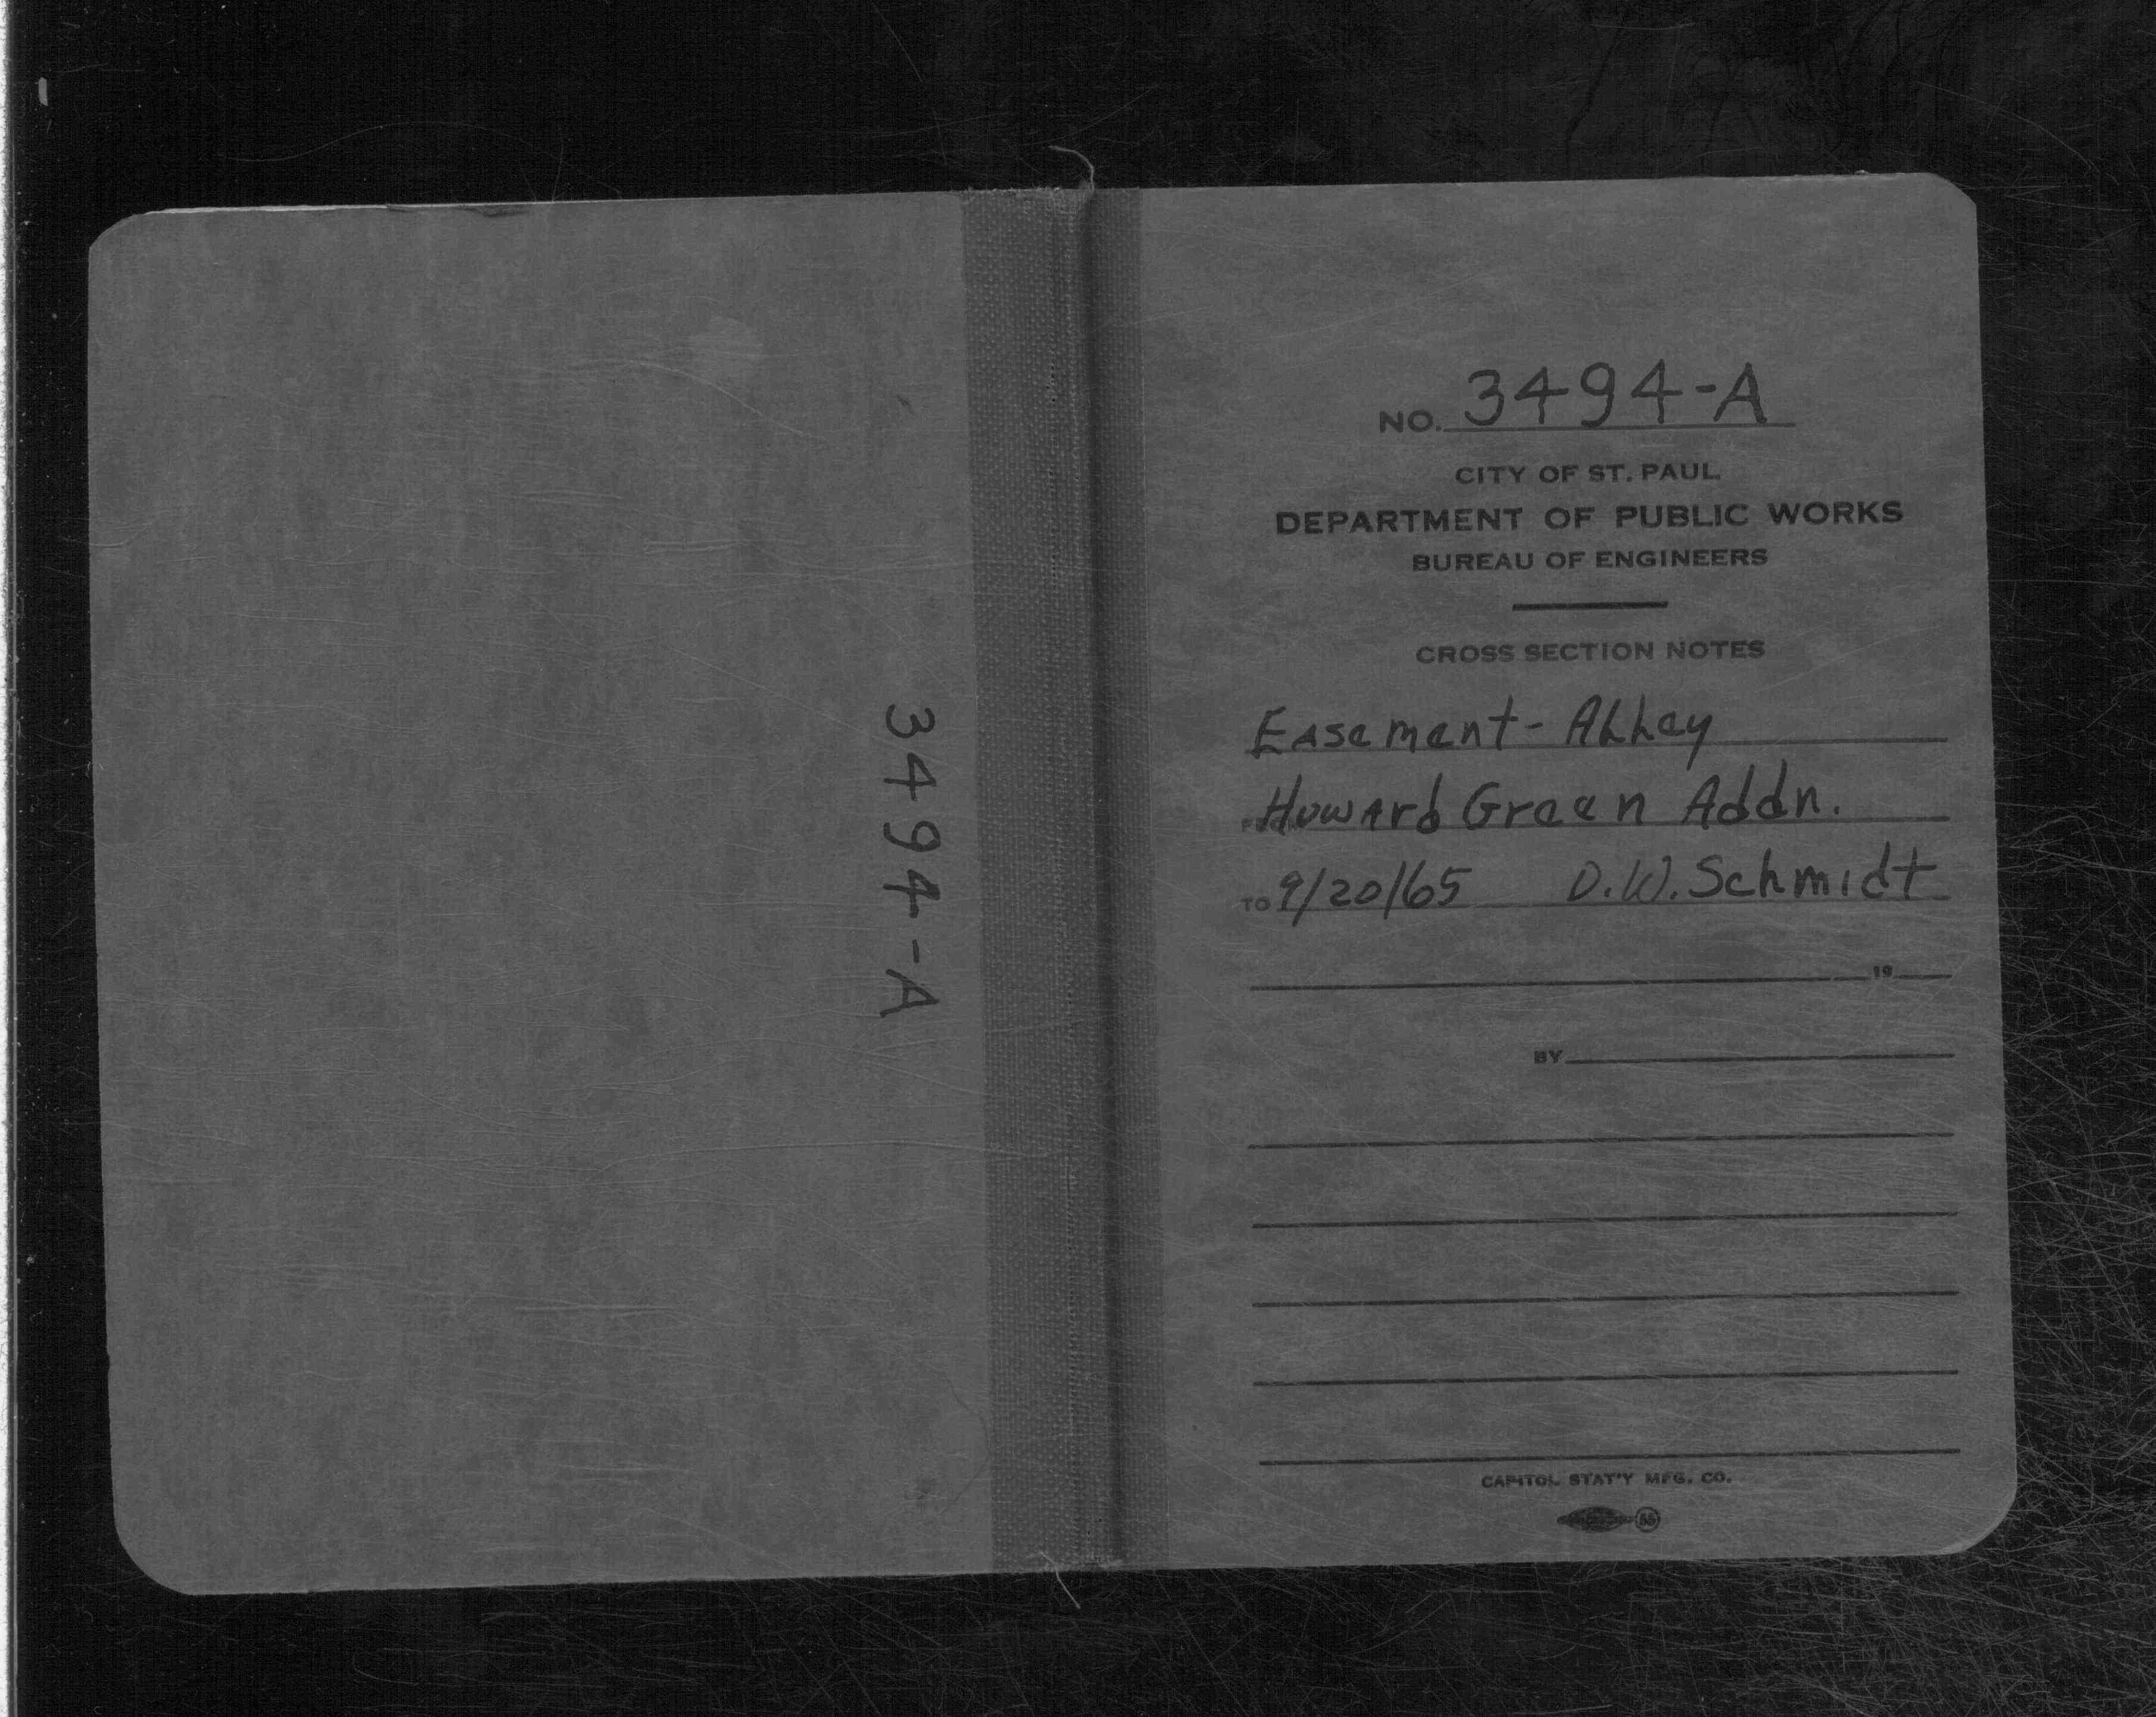 3494-A
NO. 3494-A
CITY OF ST. PAUL
DEPARTMENT OF PUBLIC WORKS
BUREAU OF ENGINEERS
CROSS SECTION NOTES
Easement - Alley
Howard Green Addn.
TO 9/20/65 D.W. Schmidt
19
BY
CAPITOL STAT'Y MFG. CO.